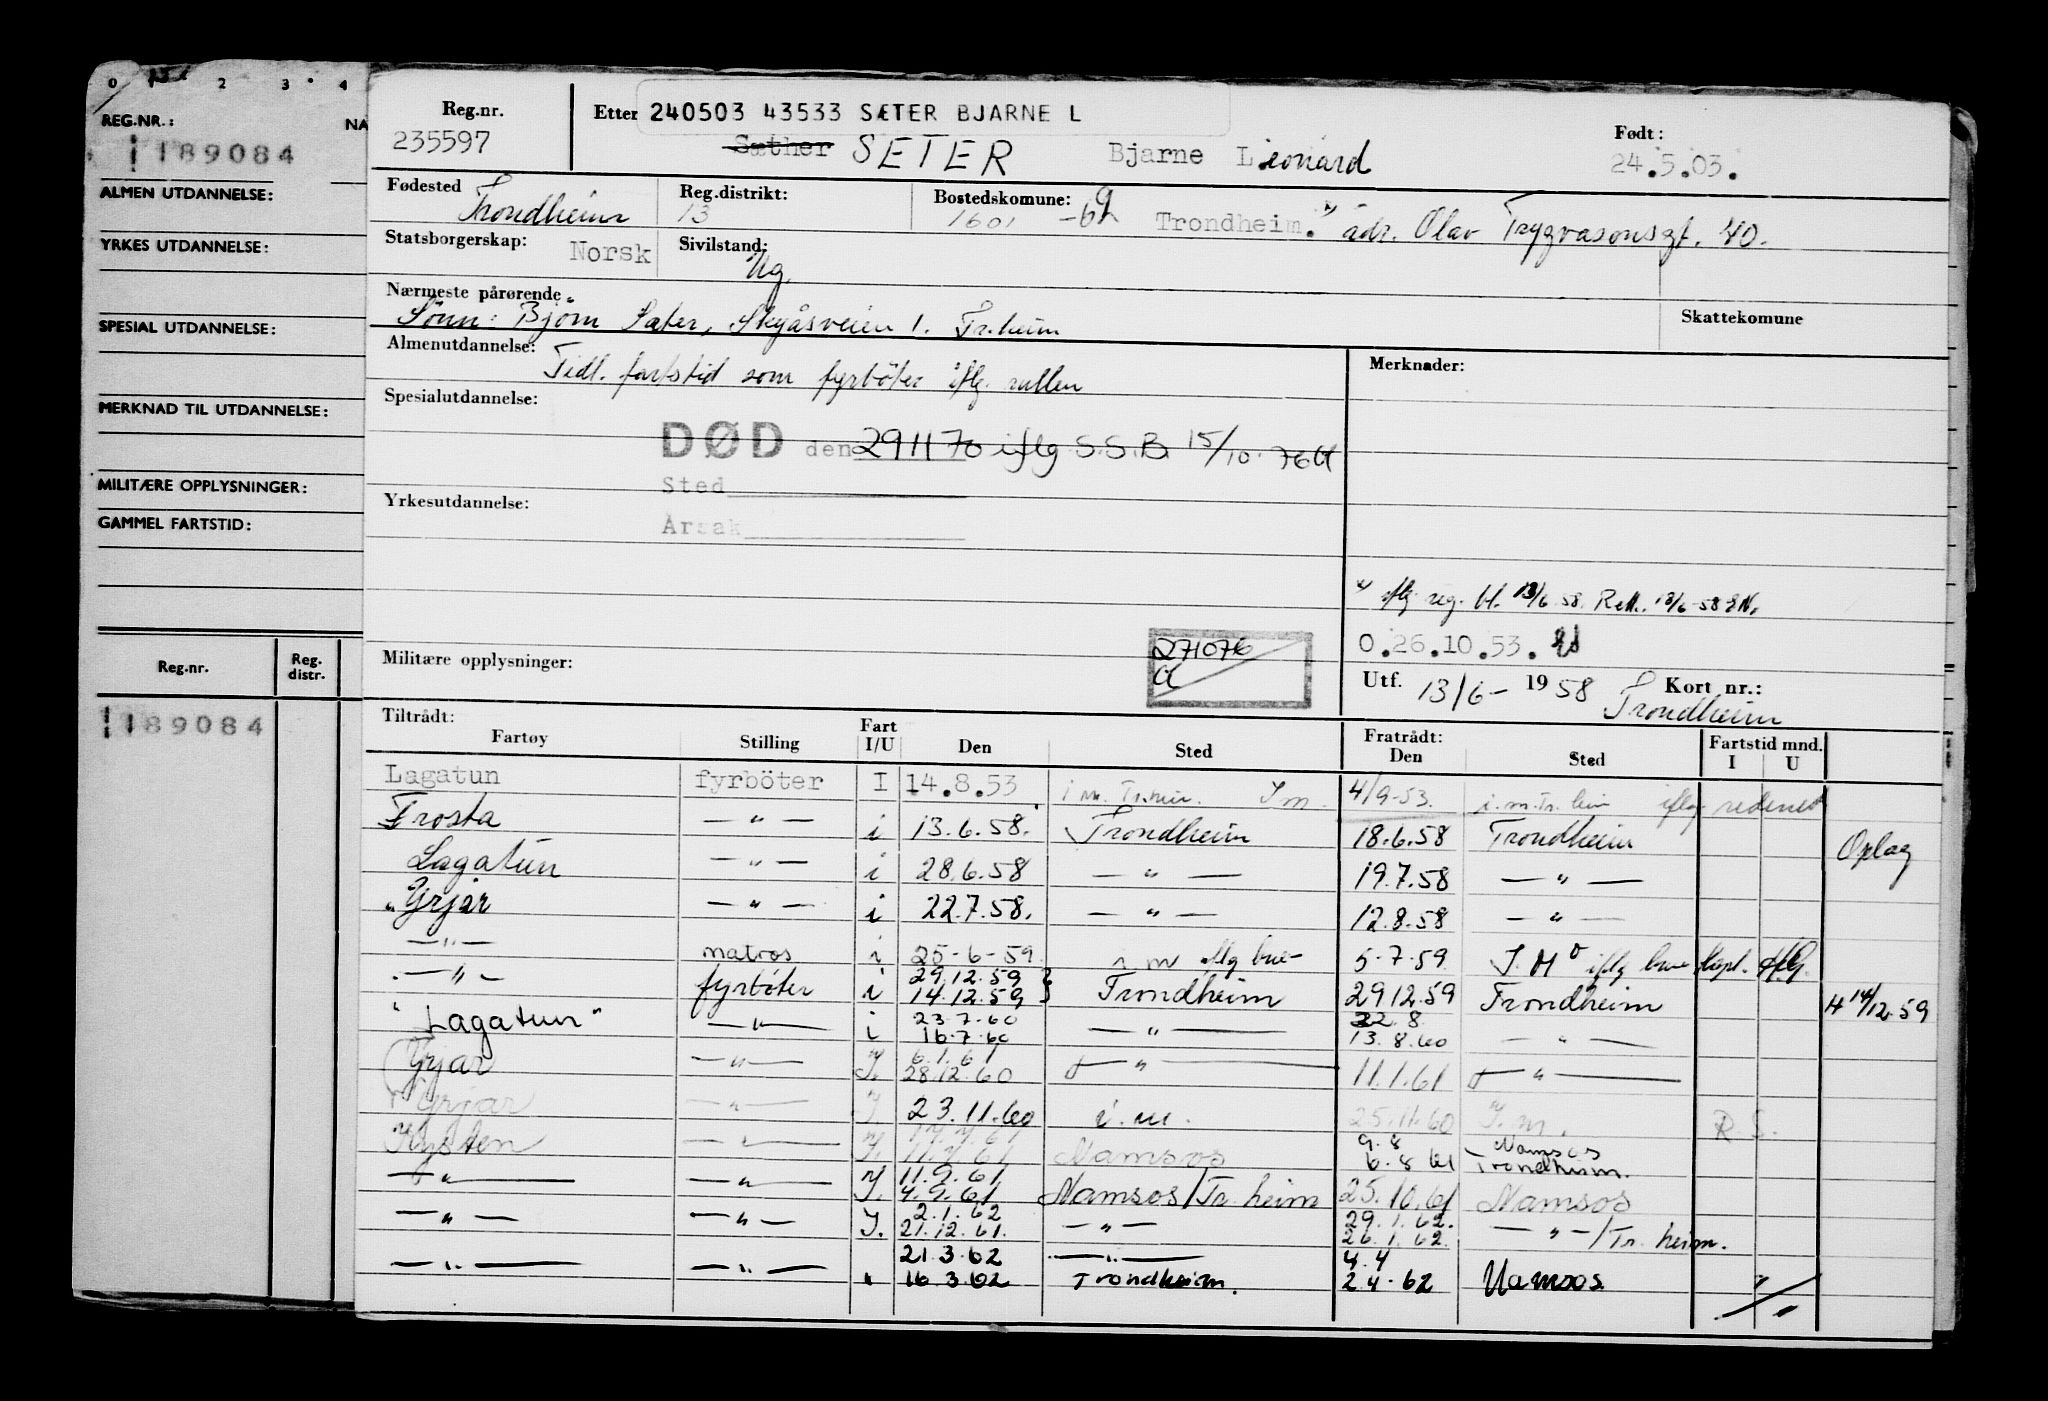 0 2 3 4
REG.NR.: NA
189084
ALMEN UTDANNELSE:
YRKES UTDANNELSE:
SPESIAL UTDANNELSE:
MERKNAD TIL UTDANNELSE:
MILITÆRE OPPLYSNINGER:
GAMMEL FARTSTID:
Reg.nr. Reg. distr.
189084
Reg.nr. Etter 240503 43533 SÆTER BJARNE L Født:
235597 Sæther SETER Bjarne Leonard 24.5.03.
Fødested Trondheim Reg.distrikt: 13 Bostedskomune: 1601 -69 Trondheim. adr. Olav Trygvasonsgt. 40.
Statsborgerskap: Norsk Sivilstand: Ug.
Nærmeste pårørende
Sønn: Bjørn Sæter, Skyåsveien 1. Tr.heim Skattekomune
Almenutdannelse: Tidl. fartstid som fyrbøter iflg. rullen Merknader:
Spesialutdannelse:
DØD den 291170 iflg S.S.B. 15/10. 76
Sted
Yrkesutdannelse:
Årsak
iflg reg. bl. 13/6 58. Rett. 13/6-58
271076
Militære opplysninger: 0.26.10.53.
Utf. 13/6- 1958 Kort nr.:
Trondheim
Tiltrådt: Fratrådt:
Fartøy Stilling Fart I/U Den Sted Den Sted Fartstid mnd. I U
Lagatun fyrböter I 14.8.53 i m. Tr.heim. 4/9-53. i.m. Tr.heim iflg rederiet
Frosta — " — i 13.6.58. Trondheim 18.6.58 Trondheim Oplag
Lagatun — " — i 28.6.58 — " — 19.7.58 — " —
Yrjar — " — i 22.7.58. — " — 12.8.58 — " —
— " — matros i 25-6-59 i m iflg 5.7.59 iflg
— " — fyrbøter i 29.12.59 14.12.59 Trondheim 29 12.59 Trondheim 14/12.59
"Lagatun" — " — i 23.7.60 16.7.60 — " — 22.8. 13.8.60 — " —
Yrjar — " — I. 6.1.61 28.12.60 — " — 11.1.61 — " —
Yrjar — " — I. 23.11.60 i.m. 25.11.60 I.m. R.S.
Kysten — " — I. 11.7.61 Namsos 9.8 6.8 61 Namsos Trondheim.
— " — — " — I. 11.9.61 4.9.61 Namsos/Tr.heim 25.10.61 Namsos
— " — — " — I. 2.1.62 21.12.61. — " — 29.1.62. 26.1.62. — " —/Tr.heim.
— " — — " — " 21.3.62 16 3 62 — " — Trondheim. 4.4 2.4-62 Namsos